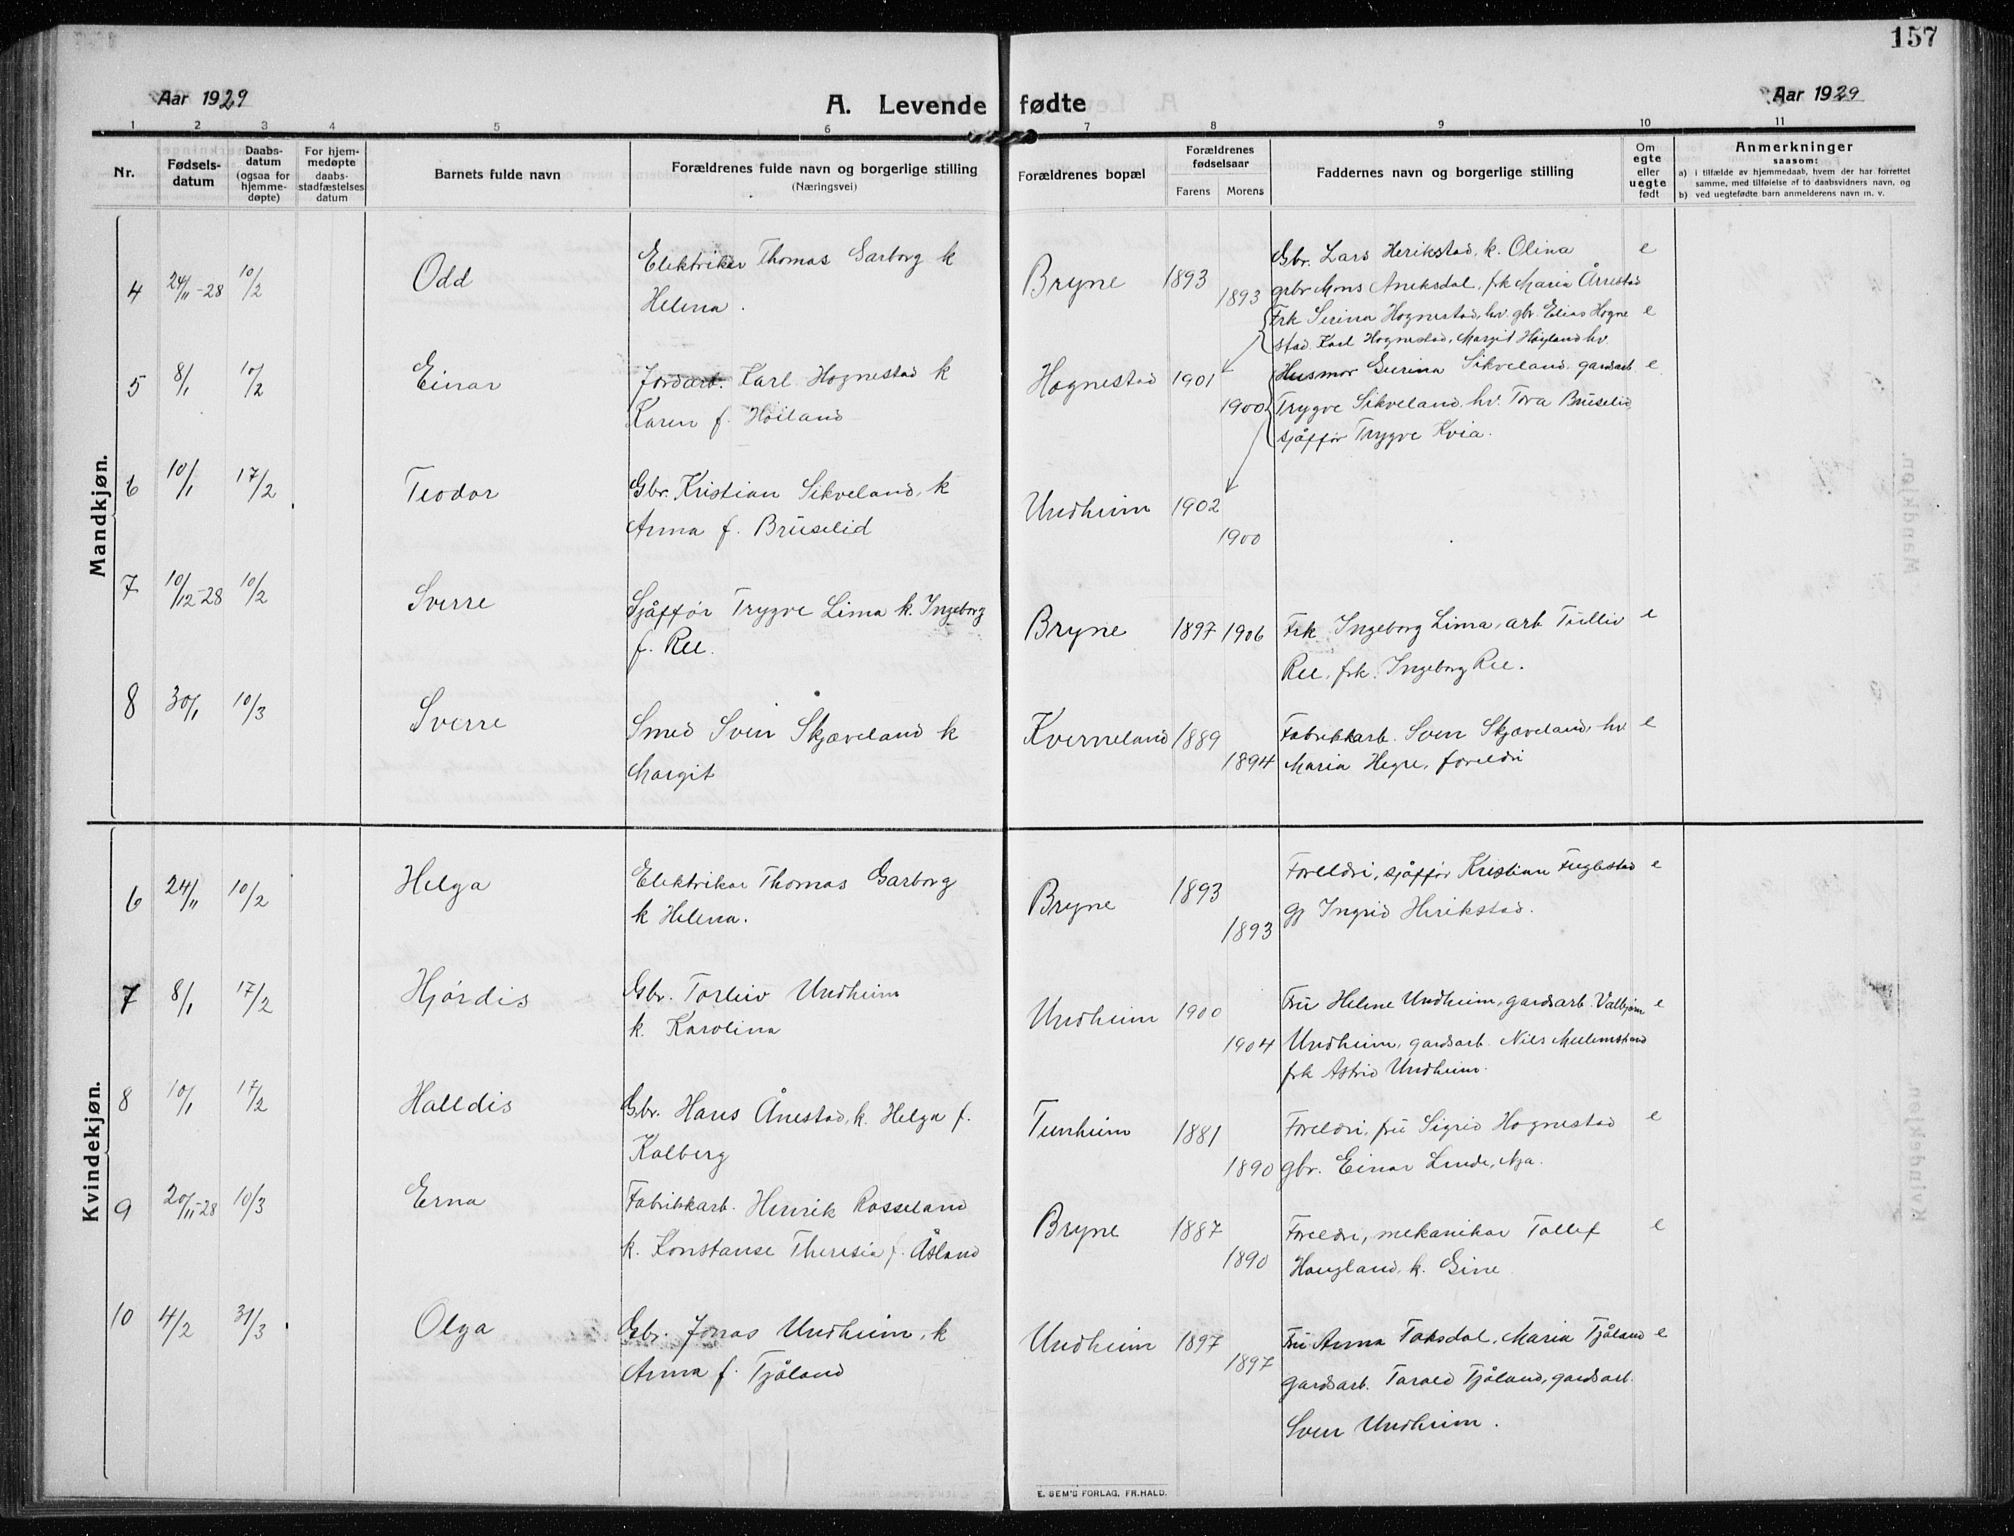 157
Aar 1929
A. Levende fødte
Aar 1929
1 2 3 4 5 6 7 8 9 10 11
Nr.
Fødsels-
datum
Daabs-
datum
(ogsaa for
hjemme-
døpte)
For hjem-
medøpte
daabs-
stadfæstelses
datum
Barnets fulde navn
Forældrenes fulde navn og borgerlige stilling
(Næringsvei)
Forældrenes bopæl
Forældrenes
fødselsaar
Farens Morens
Faddernes navn og borgerlige stilling
Om
egte
eller
uegte
født
Anmerkninger
saasom:
a) i tilfælde av hjemmedaab, hvem der har forrettet
samme, med tilføielse af to daabsvidners navn, og
b) ved uegtefødte barn anmelderens navn m. v.
Mandkjøn.
4 24/11-28 10/2 Odd
Elektriker Thomas Garborg k
Helena.
Bryne 1893 1893
Gbr. Lars Herikstad, k. Olina e
grbr Mons Aneksdal, frk Maria Årrestad
5 8/1 10/2 Einar
Jordarb. Karl Hognestad k
Karen f. Høiland
Hognestad 1901 1900
Frk Serina Hognestad, hv. gbr. Elias Hogne e
stad. Karl Hognestad, Margit Høyland hv.
6 10/1 17/2 Teodor
Gbr. Kristian Sikveland, k
Anna f. Bruselid
Undheim 1902 1900
Husmor Gurina Sikveland, gardsarb. e
Trygve Sikveland, hv. Tora Bruselid,
sjåffør Trygve Kvia.
7 10/12-28 10/2 Sverre
Sjåffør Trygve Lima k. Ingeborg
f. Ree.
Bryne 1897 1906
Frk Ingeborg Lima, arb. e
Ree, frk. Ingeborg Ree.
8 30/1 10/3 Sverre
Smed Svein Skjæveland k
Margit
Kverneland 1889 1894
Fabrikkarb. Sven Skjæveland, hv e
Maria Hegre, foreldri
Kvindekjøn.
6 24/11 10/2 Helga
Elektrikar Thomas Garborg
k Helena.
Bryne 1893 1893
Foreldri, sjåffør Kristian Fuglestad e
gj Ingrid Herikstad.
7 8/1 17/2 Hjørdis
Gbr. Torleiv Undheim
k. Karolina
Undheim 1900 1904
Fru Helene Undheim, gardsarb. Valbjørn e
Undheim, gardsarb. Nils
frk Astrid Undheim.
8 10/1 17/2 Halldis
Gbr. Hans Ånestad, k. Helga f.
Kalberg
Tunheim 1881 1890
Foreldri, fru Sigrid Hognestad e
gbr. Einar Linde,
9 20/11-28 10/3 Erna
Fabrikkarb. Henrik Rosseland
k. Konstanse Theresia f. Åsland
Bryne 1887 1890
Foreldri, mekanikar Tollef e
Haugland, k. Gine
10 4/2 31/3 Olga
Gbr. Jonas Undheim, k
Anna f. Tjåland
Undheim 1897 1897
Fru Anna Taksdal, Maria Tjåland e
gardsarb. Tarald Tjåland, gardsarb.
Sven Undheim.
E. SEM'S FORLAG, FR.HALD.